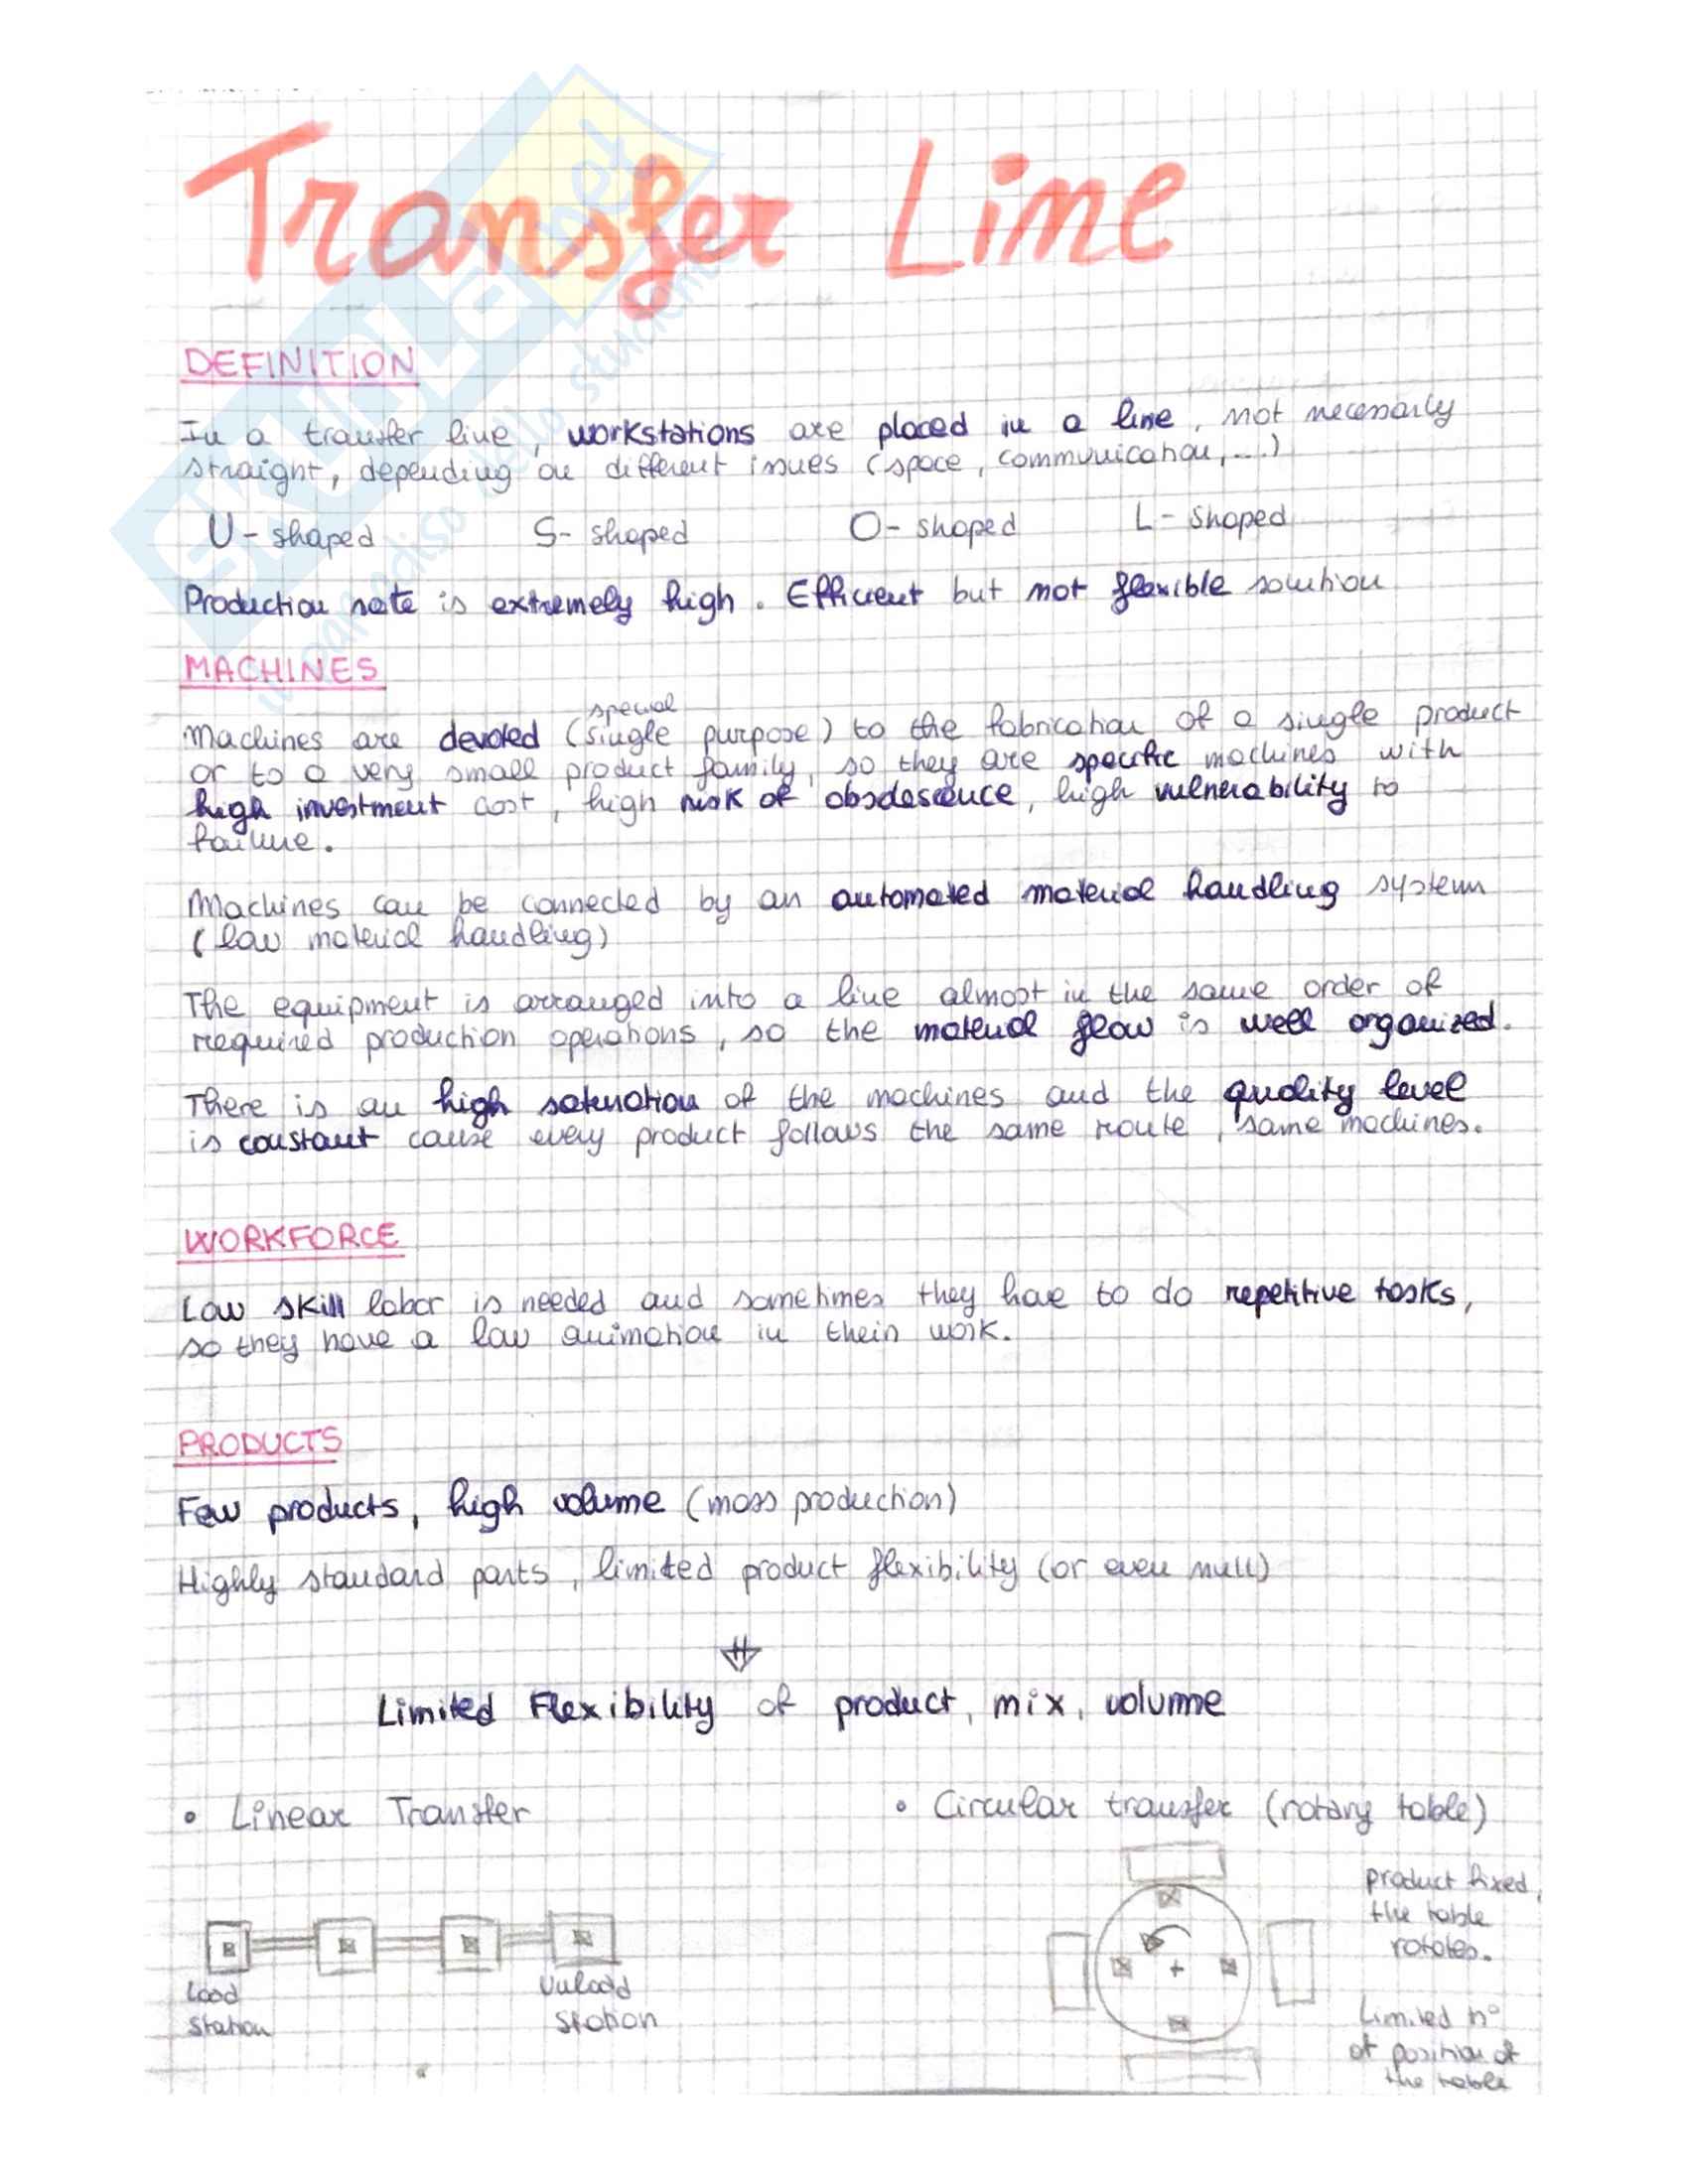 Transfer Line
DEFINITION
In a transfer line, workstations are placed in a line, not necessarily
straight, depending on different issues (space, communication,...)
U-shaped S-shaped O-shaped L-shaped
Production rate is extremely high. Efficient but not flexible solution
MACHINES
special
Machines are devoted (single purpose) to the fabrication of a single product
or to a very small product family, so they are specific machines with
high investment cost, high risk of obsolescence, high vulnerability to
failure.
Machines can be connected by an automated material handling system
(low material handling)
The equipment is arranged into a line almost in the same order of
required production operations, so the material flow is well organized.
There is an high saturation of the machines and the quality level
is constant cause every product follows the same route, same machines.
WORKFORCE
Low skill labor is needed and sometimes they have to do repetitive tasks,
so they have a low animation in their work.
PRODUCTS
Few products, high volume (mass production)
Highly standard parts, limited product flexibility (or even null)
Limited Flexibility of product, mix, volume
• Linear Transfer
• Circular transfer (rotary table)
Load
station
Unload
station
product fixed,
the table
rotates.
Limited n°
of position of
the table
SKUOLA.net
un paradiso dello studente